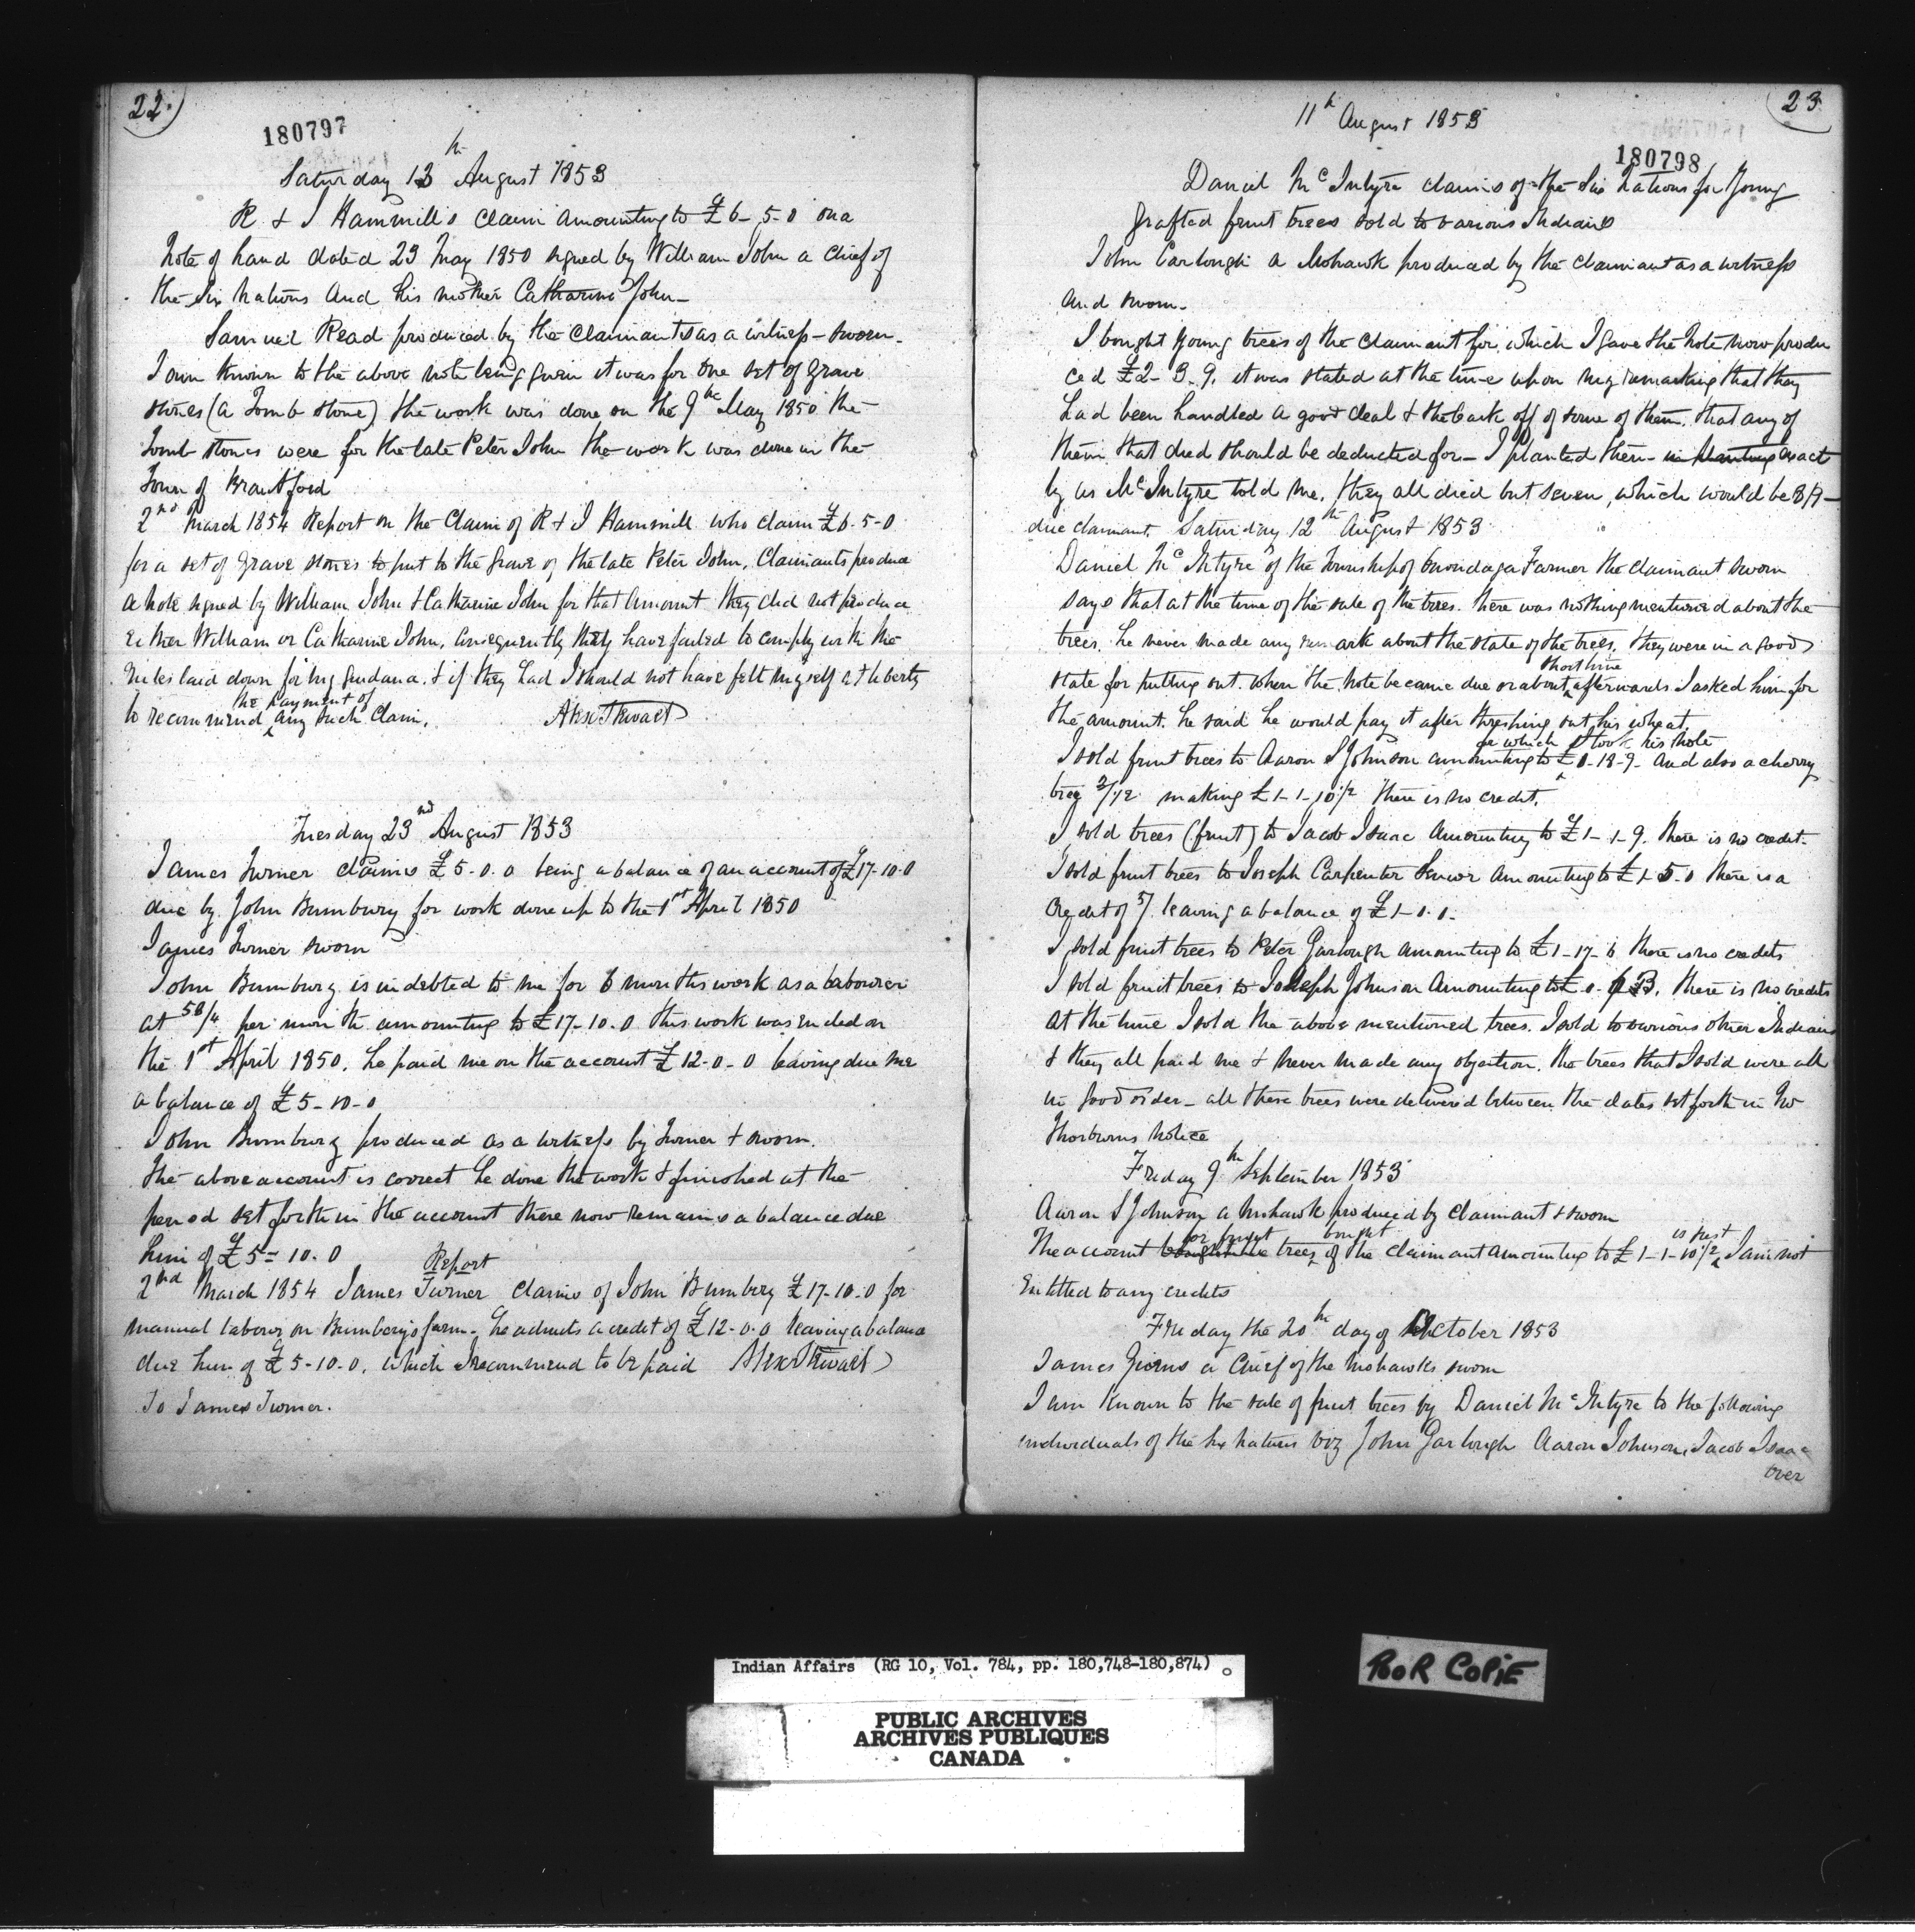 22.
180797
Saturday 13th August 1853
R & J Hammill's claim amounting to £6-5-0 on a
Note of hand dated 23 May 1850 signed by William John a Chief of
the Six Nations and his mother Catharine John_
Samuel Read produced by the Claimants as a witness - sworn.
I am known to the above note being given it was for one set of grave
stones (a Tomb stone) the work was done on the 9th May 1850 the
Tomb stones were for the late Peter John the work was done in the
Town of Brantford
2nd March 1854 Report on the Claim of R & J Hammill who claim £6-5-0
for a set of grave stones to put to the Grave of the late Peter John, Claimants produce
a note signed by William John & Catharine John for that amount they did not produce
either William or Catharine John, consequently they have failed to comply with the
rules laid down for my guidance. & if they had I should not have felt myself at liberty
the payment of
to recommend any such Claim. Alex Stewart
Tuesday 23nd August 1853
James Turner claims £5-0.0 being a balance of an account of £17-10-0
due by John Bumbury for work done up to the 1st April 1850
James Turner sworn
John Bumbury is indebted to me for 6 months work as a labourer
at 58/4 per month amounting to £17-10.0 this work was ended on
the 1st April 1850. he paid me on the account £12-0-0 leaving due me
a balance of £5-10-0
John Bumbury produced as a witness by Turner & sworn.
The above account is correct he done the work & finished at the
period set forth in the account there now remains a balance due
him of £5-10-0
Report
2nd March 1854 James Turner claims of John Bumbery £17-10.0 for
manual labour on Bumbery's farm. he admits a credit of £12-0.0 leaving a balance
due him of £5-10-0. which I recommend to be paid Alex Stewart
To James Turner.
23
11th August 1853
180798
Daniel McIntyre claims of the Six Nations for Young
grafted fruit trees sold to various Indians
John Carlough a Mohawk produced by the Claimant as a witness
and sworn_
I bought young trees of the Claimant for which I gave the Note now produ
ced £2-3-9. it was stated at the time upon my remarking that they
had been handled a good deal & the bark off of some of them. that any of
them that died should be deducted for_ I planted them in planting exact
ly as McIntyre told me. they all died but seven, which would be 8/9_
due claimant. Saturday 12th August 1853
Daniel McIntyre of the Township of Onondaga Farmer the claimant sworn
says that at the time of the sale of the trees. there was nothing mentioned about the
trees. he never made any remark about the state of the trees. they were in a good
short time
state for putting out. when the note became due or about afterwards I asked him for
the amount. he said he would pay it after threshing out his wheat.
for which I took his note
I sold fruit trees to Aaron S Johnson amounting to £0-18-9. and also a cherry
tree 3/1½ making £1-1-10½ there is no credit.
I sold trees (fruit) to Jacob Isaac amounting to £1-1-9. there is no credit.
I sold fruit trees to Joseph Carpenter Senior amounting to £1-5-0 there is a
credit of 5/. leaving a balance of £1-0.0.
I sold fruit trees to Peter Garlough amounting to £1-17-6 there is no credits
I sold fruit trees to Joseph Johnson amounting to there is no credits
at the time I sold the above mentioned trees. I sold to various other Indians
& they all paid me & never made any objection. the trees that I sold were all
in good order_ all these trees were delivered between the dates set forth in Mr
Thorburns Notice
Friday 9th September 1853
Aaron S Johnson a Mohawk produced by claimant & sworn
for fruit bought is just
The account trees of the claimant amounting to £1-1-10½ I am not
Entitled to any credits
Friday the 20th day of October 1853
James Givens a Chief of the Mohawks sworn
I am known to the sale of fruit trees by Daniel McIntyre to the following
individuals of the Six Nations viz John Garlough Aaron Johnson, Jacob Isaac
over
Indian Affairs (RG 10, Vol. 784, pp. 180,748-180,874)
POOR COPIE
PUBLIC ARCHIVES
ARCHIVES PUBLIQUES
CANADA